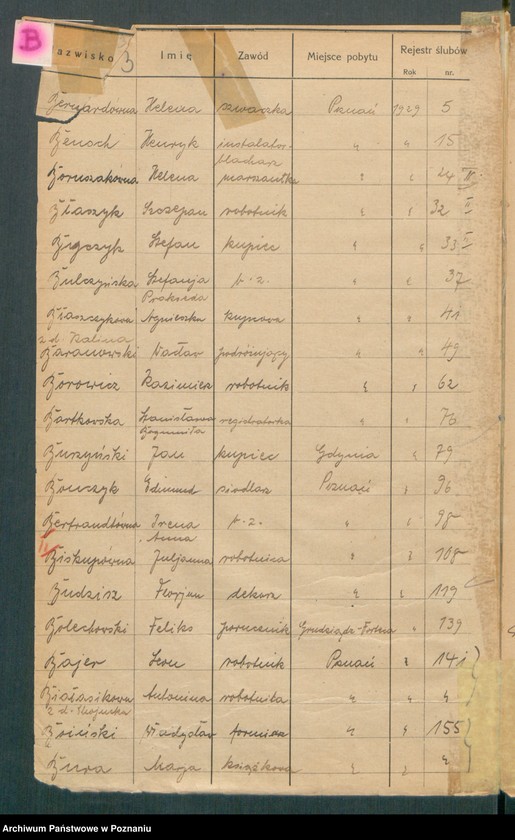 B
Nazwisko Imię Zawód Miejsce pobytu Rejestr ślubów
Rok nr.
Bernardówna Helena szwaczka Poznań 1929 5
Benoch Henryk instalator „ „ 15
blacharz
Boruszakówna Helena „ „ 24 II
Błaszyk Szczepan robotnik „ „ 32 II
Stefan kupiec „ „ 33 II
Bulczyńska Stefanja b. z. „ „ 37
Prakseda
Błaszczykowa Agnieszka kupcowa „ „ 41
z d. Kalina
Baranowski Wacław podróżujący „ „ 49
Borowicz Kazimierz robotnik „ „ 62
Bartkowska Stanisława registratorka „ „ 76
Bogumiła
Buszyński Jan kupiec Gdynia „ 79
Bonczyk Edmund siodlarz Poznań „ 96
Bertrandtówna Irena b. z. „ „ 98
Anna
Biskupówna Juljanna robotnica „ „ 108
Budzisz Florjan dekarz „ „ 119
Bolechowski Feliks porucznik Grudziądz-Forteca „ 139
Bajer Leon robotnik Poznań „ 141
Białasikowa Antonina robotnica „ „ „
z d.
Boiński Władysław formierz „ „ 155
Bura Marja książkowa „ „ „
Archiwum Państwowe w Poznaniu